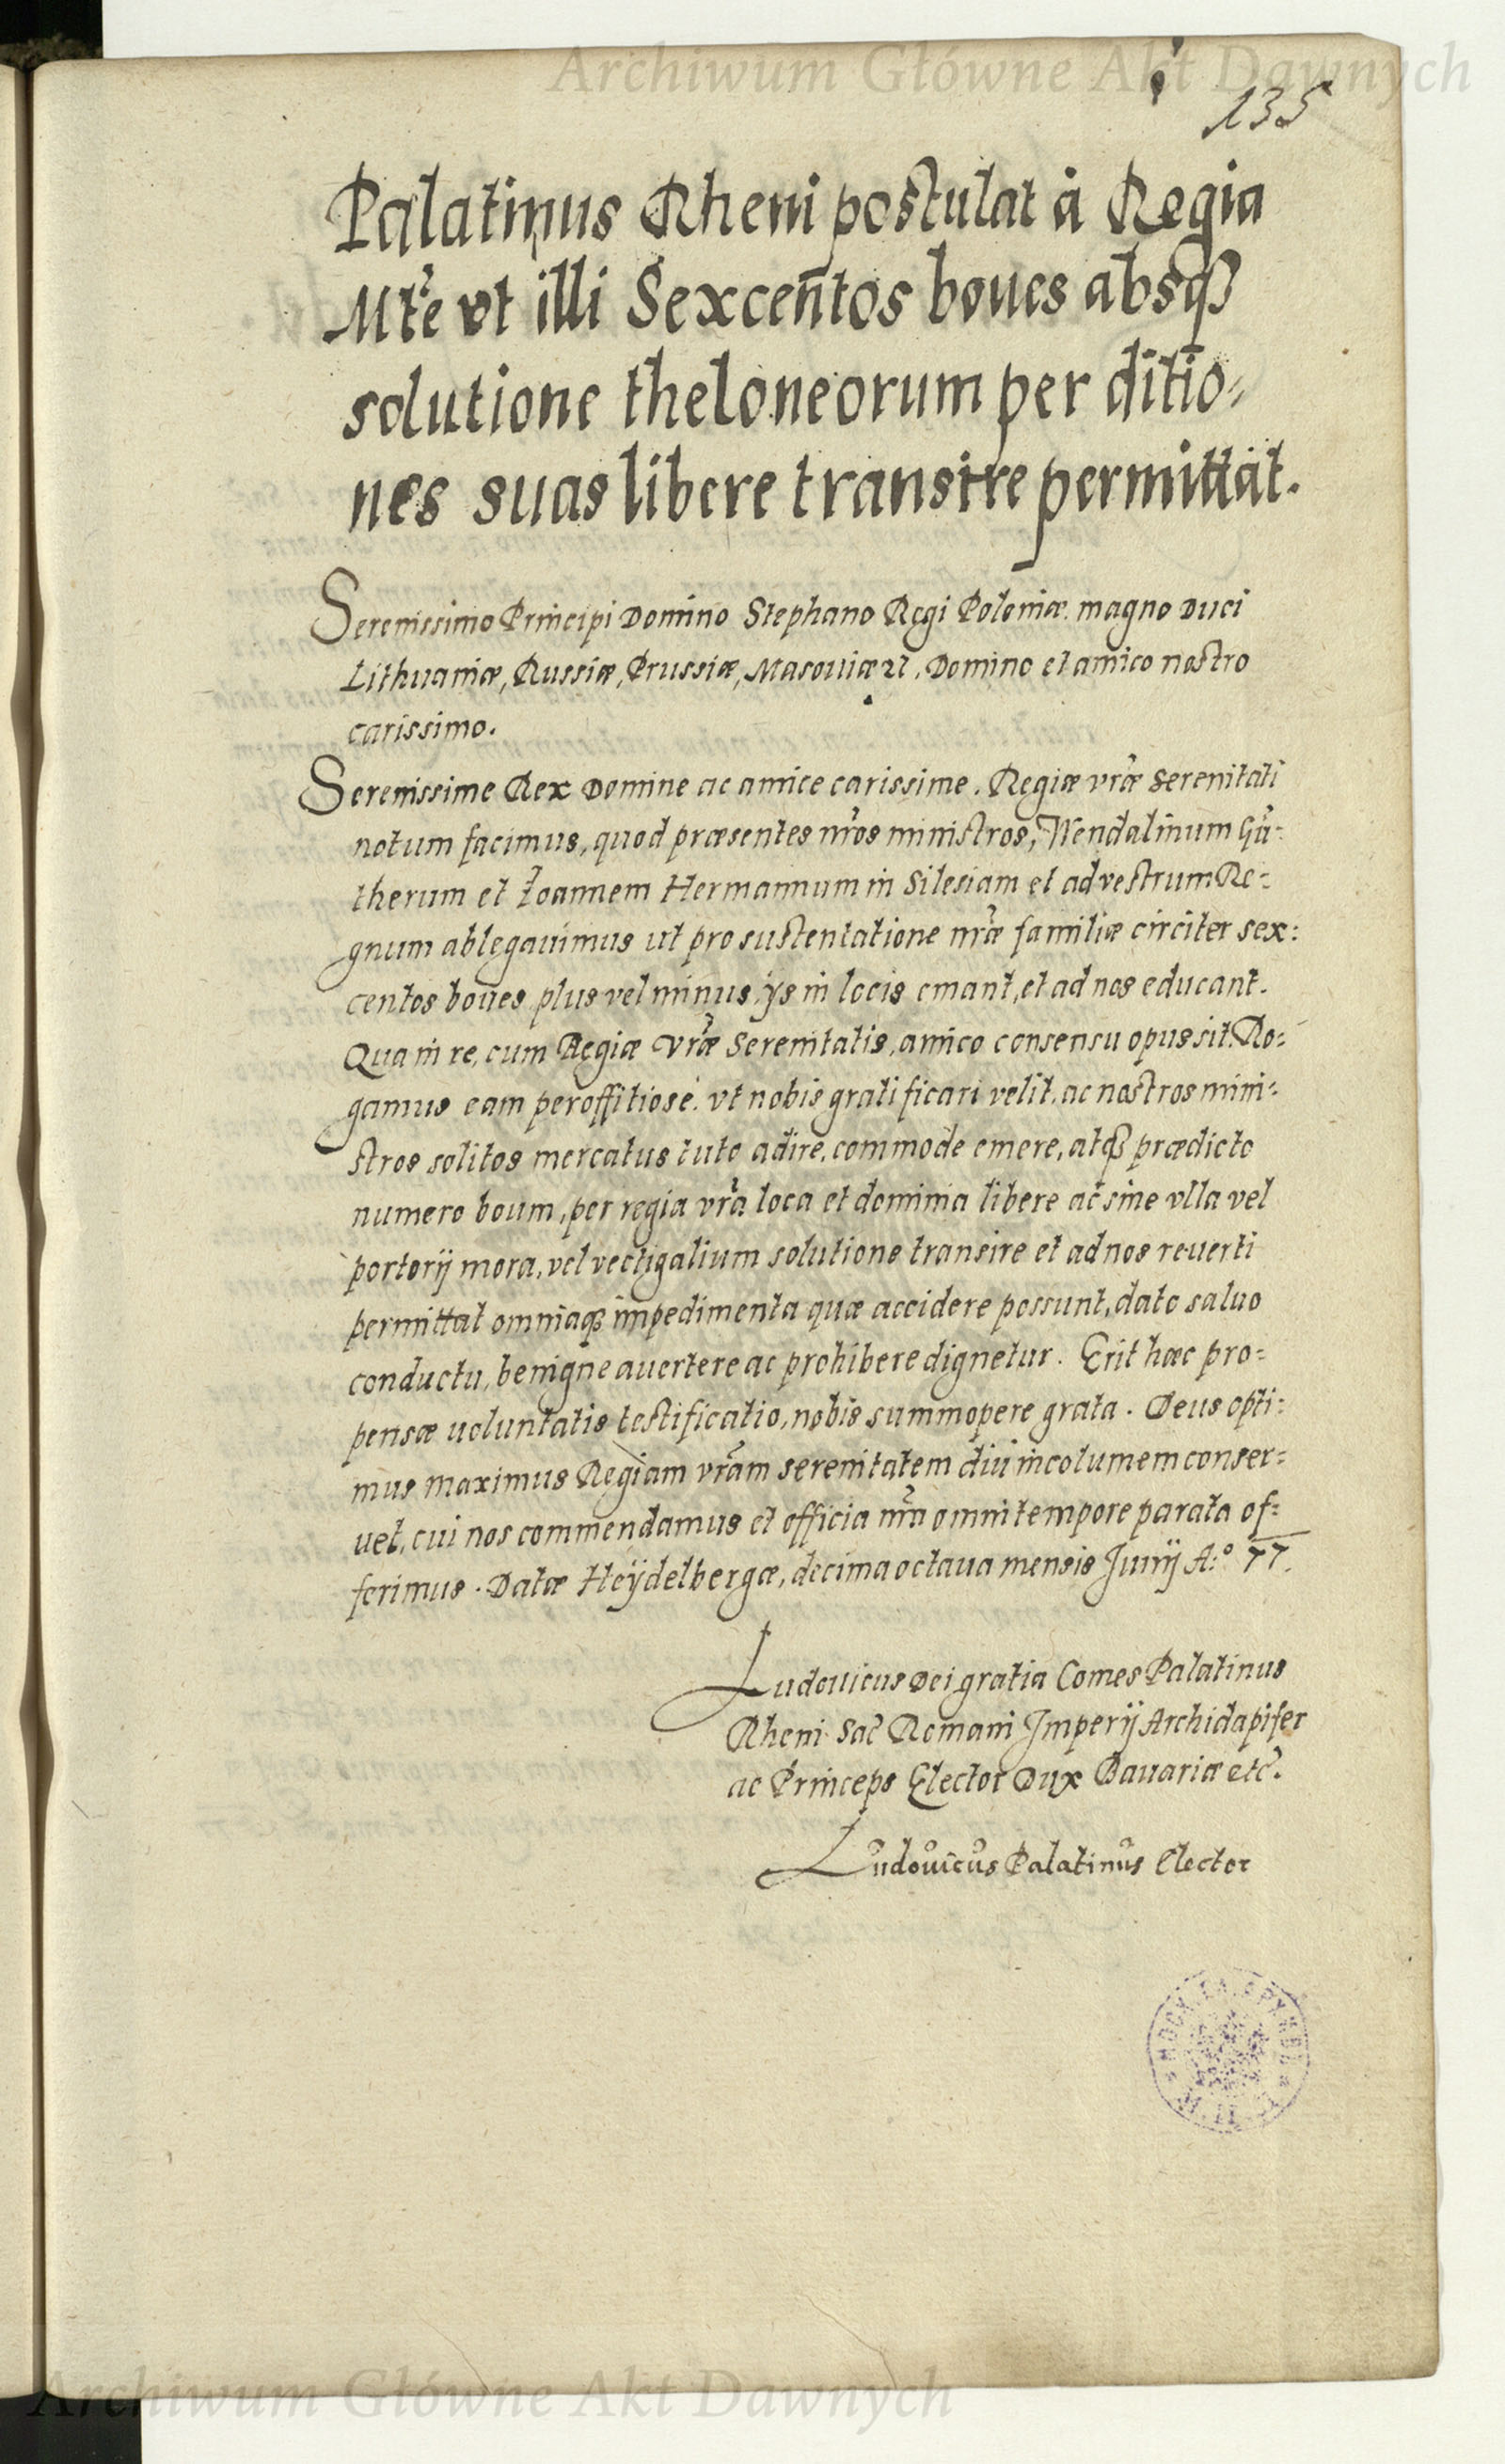 Archiwum Główne Akt Dawnych
135
Palatinus Rheni postulat à Regia
Mt͛e vt illi Sexcen̄tos boues absqꝫ
solutione theloneorum per ditio⸗
nes suas libere transire permittat.
Serenissimo Principi Domino Stephano Regi Poloniæ. magno Duci
Lithuaniæ, Russiæ, Prussiæ, Masouiæ ꝛc. Domino et amico nostro
carissimo.
Serenissime Rex Domine ac amice carissime. Regiæ vr̃æ Serenitati
notum facimus, quod præsentes nr̃os ministros, Wendalinum Gu̇⸗
therum et Joannem Hermannum in Silesiam et ad vestrum Re⸗
gnum ablegauimus ut pro sustentatione nr̃æ familiæ circiter sex⸗
centos boues plus vel minus, ijs in locis emant, et ad nos educant.
Qua in re, cum Regiæ Vr̃æ Serenitatis, amico consensu opus sit. Ro⸗
gamus eam peroffitiosè. vt nobis gratificari velit, ac nostros mini⸗
stros solitos mercatus tuto adire, commode emere, atqꝫ prædicto
numero boum, per regia vr̃a loca et dominia libere ac sine vlla vel
portorij mora, vel vectigalium solutione transire et ad nos reuerti
permittat omniaqꝫ impedimenta quæ accidere possunt, dato saluo
conductu, benigne auertere ac prohibere dignetur. Erit hæc pro⸗
pensæ uoluntatis testificatio, nobis summopere grata. Deus opti⸗
mus maximus Regiam vr̃am serenitatem diu incolumem conser⸗
uet, cui nos commendamus et officia nr̃a omni tempore parata of⸗
ferimus. Datæ Heÿdelbergæ, decima octaua mensis Junij A:º 77.
Ludouicus Dei gratia Comes Palatinus
Rheni Sac̃ Romani Imperij Archidapifer
ac Princeps Elector Dux Bauariæ etc̃.
Ludouicus Palatinus Elector
Archiwum Główne Akt Dawnych